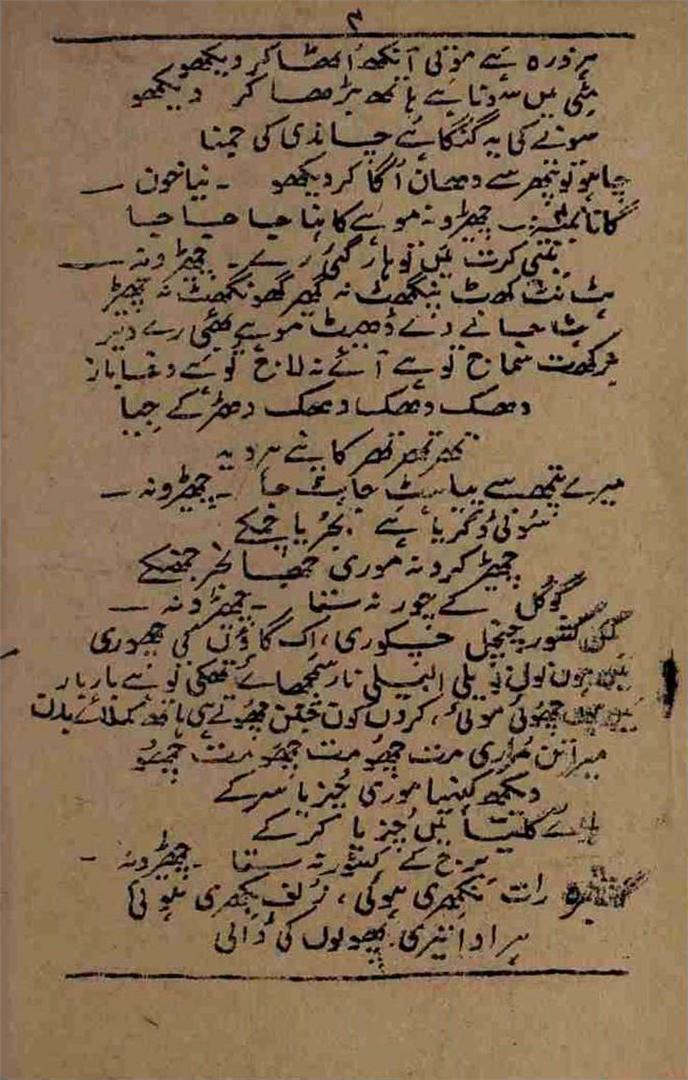 ۳
ہر ذرہ ہے موتی آنکھ اٹھا کر دیکھو
مٹی میں سونا ہے ہاتھ بڑھا کر دیکھو
سونے کی یہ گنگا ہے چاندی کی جمنا
چاہو تو پتھر سے دھان اُگا کر دیکھو ۔ نیا خون ـــ
گانا نمبر ـــ چھیڑو نہ موہے کانہا جا جا جا
بنتی کرت میں تو ہار گئی رے ۔ چھیڑو نہ ـــ
ہٹ نٹ کھٹ پنگھٹ نہ گھیر گھونگھٹ نہ چھیڑ
ہٹ جانے دے ڈھیٹ موہے بھئی رے دیر
لاج توسے دغا باز
دھک دھک دھک دھڑکے جیا
تھر تھر تھر کانپے ہردیہ
میرے پتھ سے جا ۔ چھیڑو نہ ـــ
سونی ڈگریا ہے بجریا چمکے
چھیڑ کرو نہ موری جھانجر جھنکے
گوکل کے چور نہ ستا ۔ چھیڑو نہ ـــ
چنچل چکوری، اک گاؤں کی چھوری
میں ہوں نول نویلی البیلی نار سمجھائے تھکی توہے بار بار
میں ہوں چھوئی موئی، کروں کون جتن چھوتے ہی ہاتھ کملائے بدن
میرا تن مراری مت چھو مت چھو مت چھو
دیکھ کنہیا موری چنریا سرکے
ہائے کلیّا میں چنریا کرکے
برج کے کشور نہ ستا ۔ چھیڑو نہ ـــ
رات نکھری ہوئی، زلف بکھری ہوئی
ہر ادا تیری پھولوں کی ڈالی